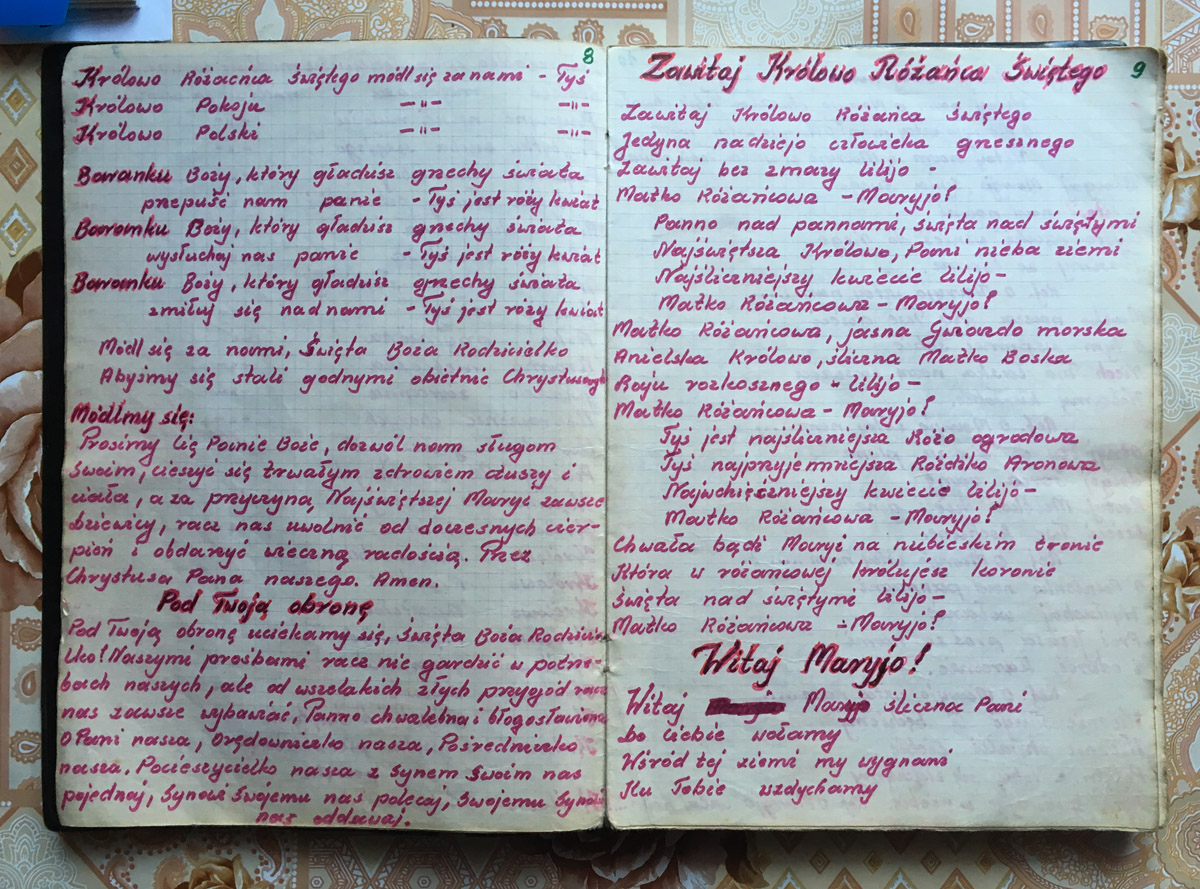 8
Królowo Różańca Świętego módl się za nami - Tyś
Królowo Pokoju -"- -"-
Królowo Polski -"- -"-
Baranku Boży, który gładzisz grzechy świata
przepuść nam panie - Tyś jest róży kwiat
Baranku Boży, który gładzisz grzechy świata
wysłuchaj nas panie - Tyś jest róży kwiat
Baranku Boży, który gładzisz grzechy świata
zmiłuj się nad nami - Tyś jest róży kwiat
Módl się za nami, Święta Boża Rodzicielko
Abyśmy się stali godnymi obietnic Chrystusowych
Módlmy się:
Prosimy Cię Panie Boże, dozwól nam sługom
Swoim, cieszyć się trwałym zdrowiem duszy i
ciała, a za przyczyną Najświętszej Maryi zawsze
Dziewicy, racz nas uwolnić od doczesnych cier-
pień i obdarzyć wieczną radością. Przez
Chrystusa Pana naszego. Amen.
Pod Twoją obronę
Pod Twoją obronę uciekamy się, Święta Boża Rodziciel-
lko! Naszymi prośbami racz nie gardzić w potrze-
bach naszych, ale od wszelakich złych przygód racz
nas zawsze wybawiać, Panno chwalebna i błogosławiona
O Pani nasza, Orędowniczko nasza, Pośredniczko
nasza, Pocieszycielko nasza z Synem Swoim nas
pojednaj, Synowi Swojemu nas polecaj, Swojemu Synowi
nas oddawaj.
Zawitaj Królowo Różańca Świętego 9
Zawitaj Królowo Różańca Świętego
Jedyna nadziejo człowieka grzesznego
Zawitaj bez zmazy lilijo -
Matko Różańcowa - Maryjo!
Panno nad pannami, święta nad świętymi
Najświętsza Królowo, Pani nieba ziemi
Najśliczniejszy kwiecie lilijo-
Matko Różańcowa - Maryjo!
Matko Różańcowa, jasna Gwiazdo morska
Anielska Królowo, śliczna Matko Boska
Raju rozkosznego - lilijo -
Matko Różańcowa - Maryjo!
Tyś jest najśliczniejsza Różo ogrodowa
Tyś najprzyjemniejsza Różdżko Aronowa
Najwdzięczniejszy kwiecie lilijo-
Matko Różańcowa - Maryjo!
Chwała bądź Maryi na niebieskim tronie
Która w różańcowej królujesz koronie
Święta nad świętymi lilijo-
Matko Różańcowa - Maryjo!
Witaj Maryjo!
Witaj Maryjo śliczna Pani
Do Ciebie wołamy
Wśród tej ziemi my wygnani
Ku Tobie wzdychamy